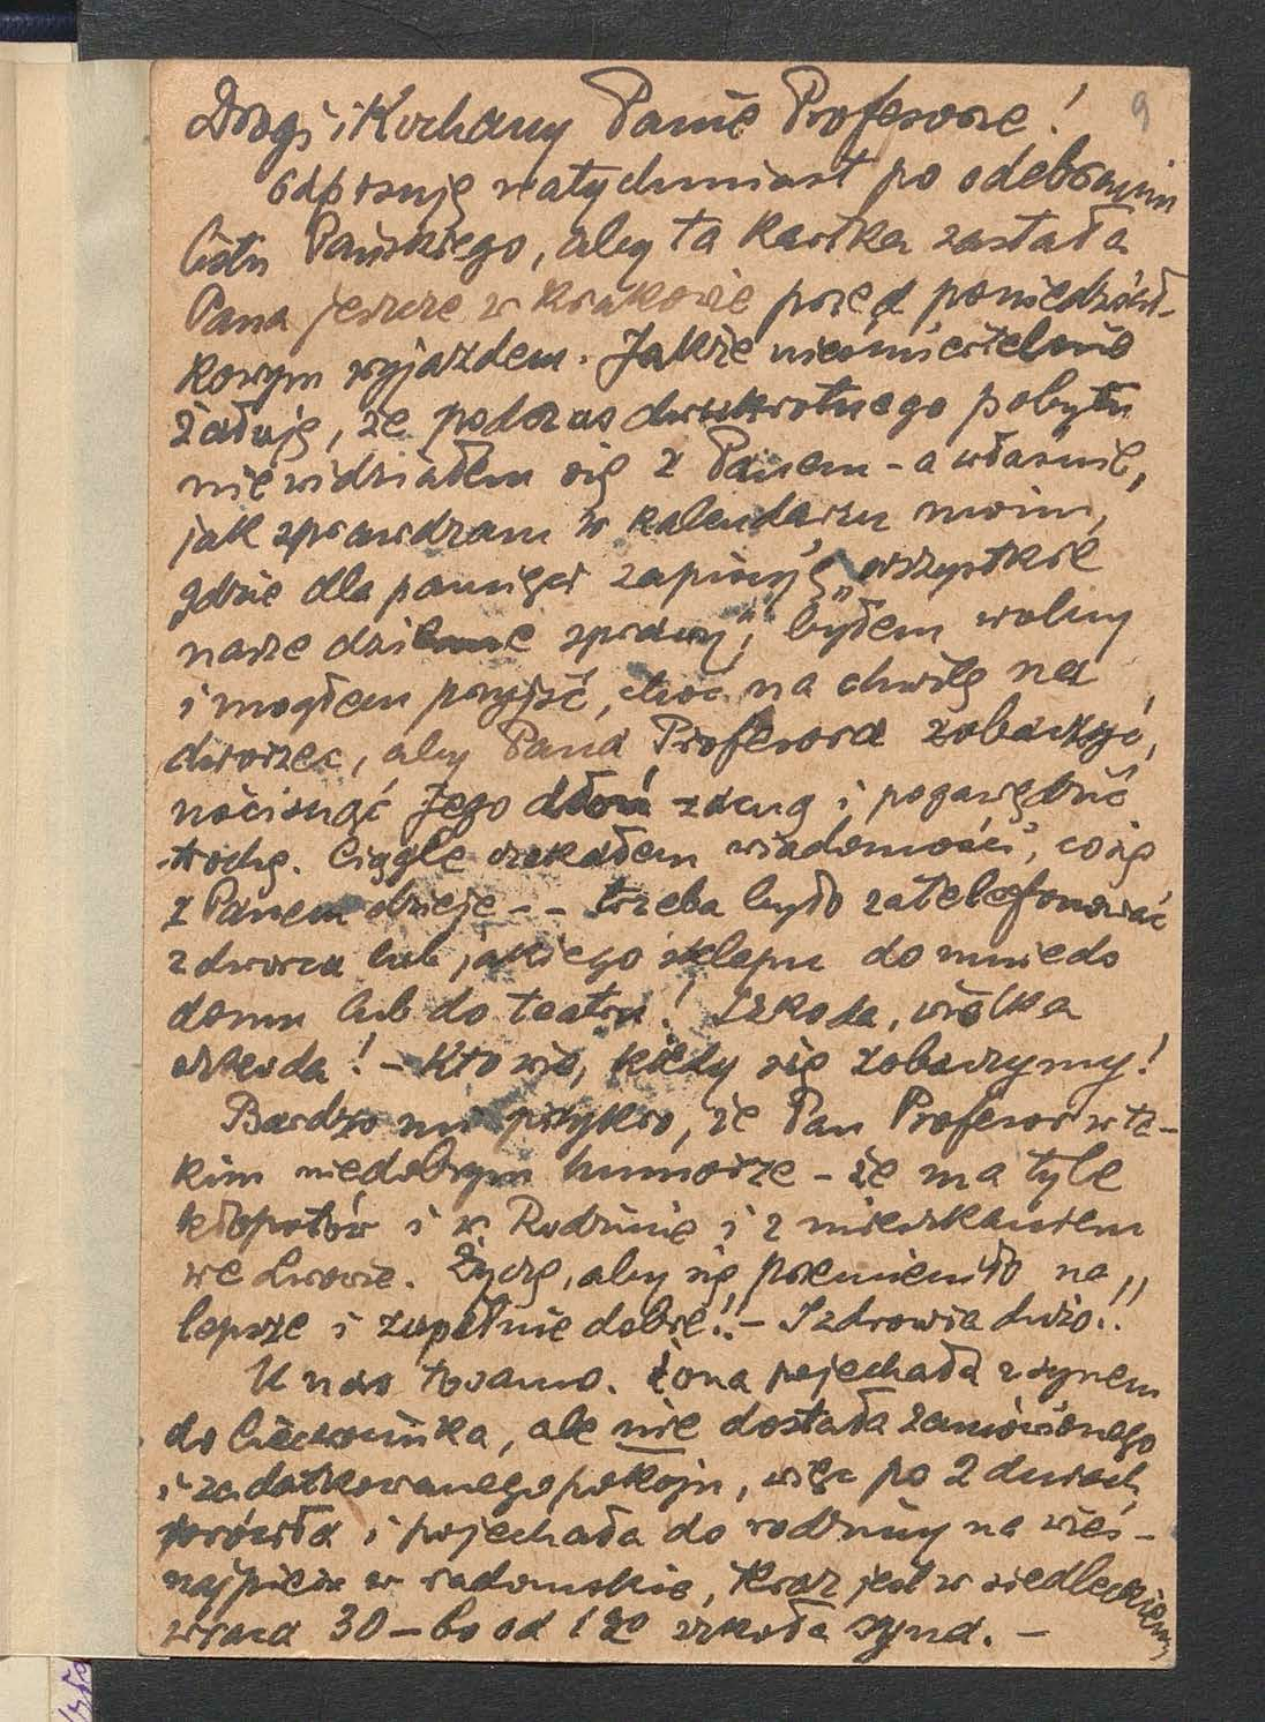 9
Drogi i Kochany Panie Profesorze!
Odpisuję natychmiast po odebraniu
listu Pańskiego, aby ta kartka zastała
Pana jeszcze w Krakowie przed poniedział-
kowym wyjazdem. Jakże nieśmiertelnie
żałuję, że podczas dwukrotnego pobytu
nie widziałem się z Panem - a właśnie,
jak sprawdzam w kalendarzu moim,
gdzie dla pamięci zapisuję „wszystkie
nasze dzienne sprawy", byłem wolny
i mogłem przyjść, choć na chwilę na
dworzec, aby Pana Profesora zobaczyć,
uścisnąć Jego dłoń zacną i pogawędzić
trochę. Ciągle czekałem wiadomości, co się
z Panem dzieje - - trzeba było zatelefonować
z dworca lub jakiego sklepu do mnie do
domu lub do teatru! Szkoda, wielka
szkoda! - Kto wie, kiedy się zobaczymy!
Bardzo mi przykro, że Pan Profesor w ta-
kim niedobrym humorze - że ma tyle
kłopotów i w Rodzinie i z mieszkaniem
we Lwowie. Życzę, aby się przemieniło na
lepsze i zupełnie dobre!! - I zdrowia dużo!!
U nas Żona pojechała z synem
do Ciechocinka, ale nie dostała zamówionego
i zadatkowanego pokoju, więc po 2 dniach
wróciła i pojechała do rodziny na wieś -
najpierw w radomskie, teraz jest w siedleckiem
wraca 30 - bo od 1 szkoła syna. -